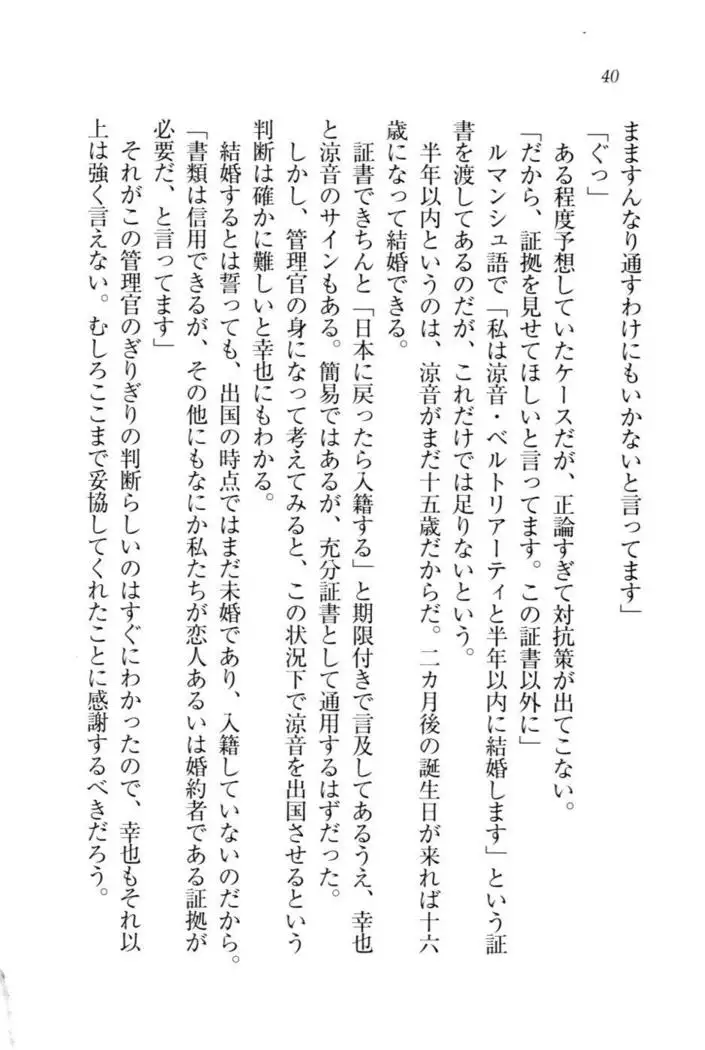 40
まますんなり通すわけにもいかないと言ってます」
「ぐっ」
ある程度予想していたケースだが、正論すぎて対抗策が出てこない。
「だから、証拠を見せてほしいと言ってます。この証書以外に」
ルマンシュ語で「私は涼音・ベルトリアーティと半年以内に結婚します」という証
書を渡してあるのだが、これだけでは足りないという。
半年以内というのは、涼音がまだ十五歳だからだ。二カ月後の誕生日が来れば十六
歳になって結婚できる。
証書できちんと「日本に戻ったら入籍する」と期限付きで言及してあるうえ、幸也
と涼音のサインもある。簡易ではあるが、充分証書として通用するはずだった。
しかし、管理官の身になって考えてみると、この状況下で涼音を出国させるという
判断は確かに難しいと幸也にもわかる。
結婚するとは誓っても、出国の時点ではまだ未婚であり、入籍していないのだから。
「書類は信用できるが、その他にもなにか私たちが恋人あるいは婚約者である証拠が
必要だ、と言ってます」
それがこの管理官のぎりぎりの判断らしいのはすぐにわかったので、幸也もそれ以
上は強く言えない。むしろここまで妥協してくれたことに感謝するべきだろう。